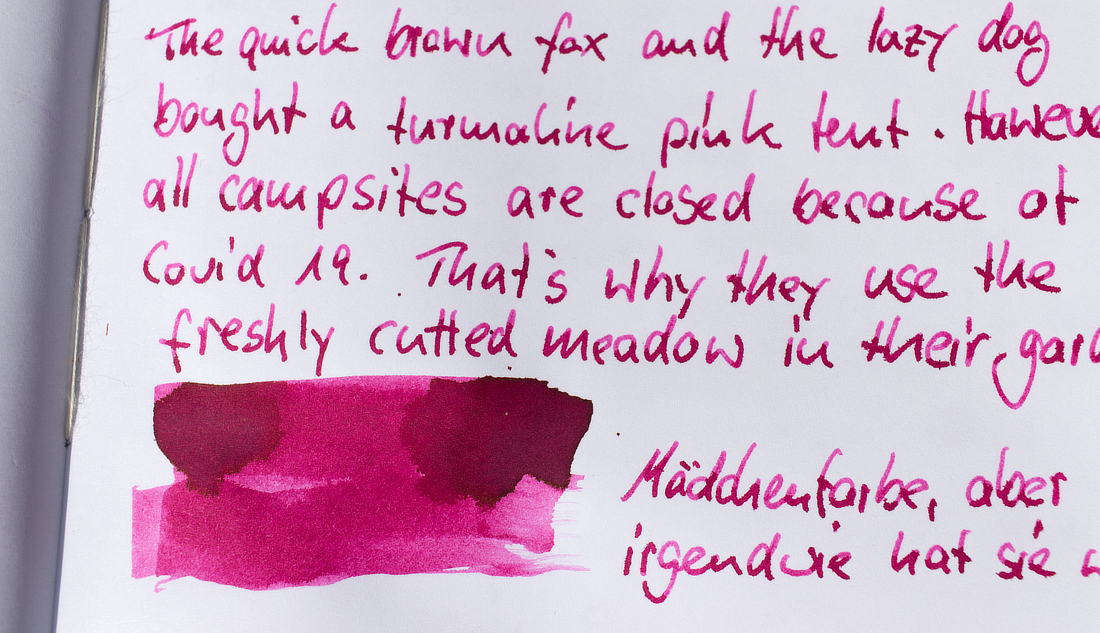 The quick brown fox and the lazy dog
bought a turmaline pink tent. Howeve
all campsites are closed because of
Covid 19. That's why they use the
freshly cutted meadow in their gard
Mädchenfarbe, aber
irgendwie hat sie w